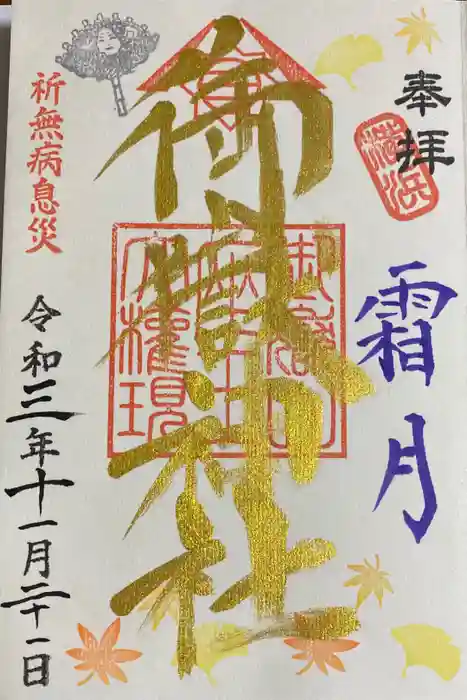 奉拝
霜月
御嶽神社
祈無病息災
令和三年十一月二十一日
權現